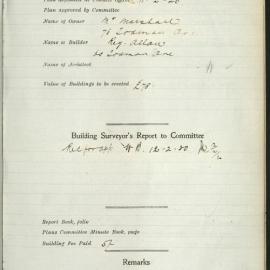 Plan approved by Committee
Name of Owner Mr Marshall
76 Todman Av.
Name of Builder Reg. Allan
Todman Ave
Name of Architect
Value of Buildings to be erected £78
Building Surveyor's Report to Committee
12-2-20
Report Book, folio
Plans Committee Minute Book, page
Building Fee Paid 5/-
Remarks